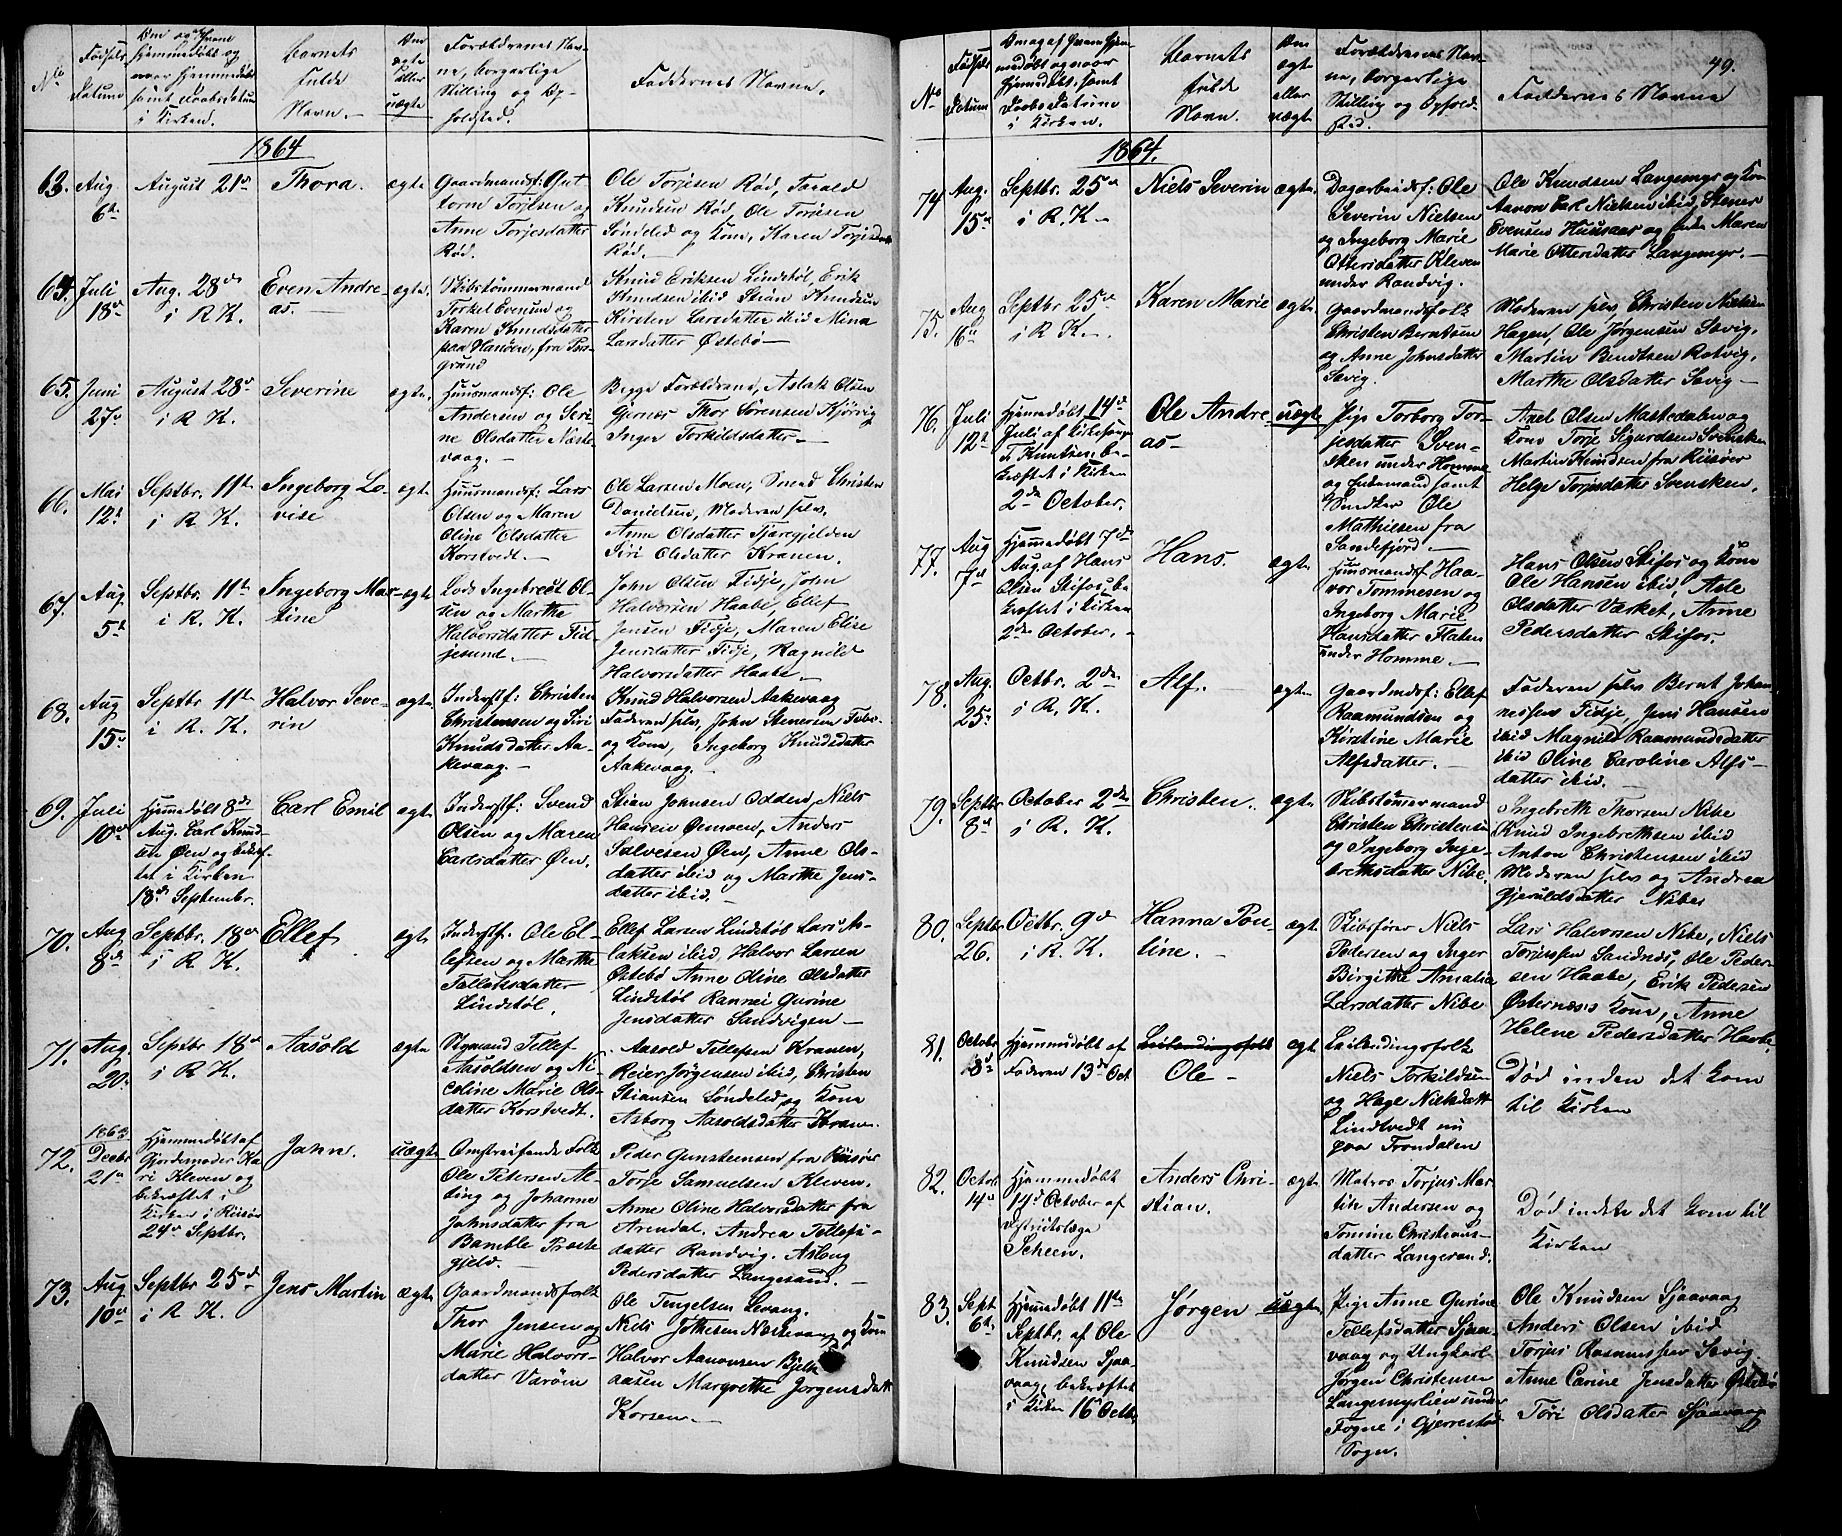 No
Fødsels
Datum
Barnets
fulde
Navn.
ægte
eller
uægte
Forældrenes Nav-
ne, borgerlige
Stilling og Op-
holdsted.
Faddernes Navne.
1864
63.
Aug.
6te
August 21de
Thora.
ægte
Gaardmandsf: Gut
torm Torjesen og
Anne Torjesdatter
Rød.
Ole Torjesen Rød, Tarald
Knudsen Rød, Ole Torjesen
Søndeled og Kone, Karen Torjesdatter
Rød.
64.
Juli
18de
Aug. 28de
i R. K.
Even Andre-
as.
ægte.
Skibstømmermand
Torkel Evensen og
Karen Knudsdatter
paa Hanøen, fra Pors-
grund
Knud Eriksen Lindstøl, Erik
Knudsen ibid Stian Knudsen
Kirsten Larsdatter ibid Mina
Larsdatter Østebø
65.
Juni
27de
August 28de
i R. K.
Severine
ægte.
Huusmandsf: Ole
Andersen og Seri-
ne Olsdatter Næste-
vaag.
Begge Forældrene, Aslak Olsen
Gjernæs Thor Sørensen Kjørvig
Inger Torkildsdatter
66.
Mai
12te
Septbr. 11te
i R. K.
Ingeborg Lo-
vise
ægte
Huusmandsf: Lars
Olsen og Maren
Oline Olsdatter
Korstvedt.
Ole Larsen Moen, Smed Christen
Danielsen, Moderen selv,
Anne Olsdatter Tjæregjelden
Siri Olsdatter Kranen.
67.
Aug.
5te
Septbr. 11te
i R. K.
Ingeborg Mar-
tine
ægte
Lods Ingebregt Ol-
sen og Marthe
Halvorsdatter Fid-
jesund.
John Olsen Fidje, John
Halvorsen Haabe, Ellef
Jensen Fidje, Maren Elise
Jensdatter Fidje, Ragnild
Halvorsdatter Haabe.
68.
Aug
15de
Septbr 11te
i R. K.
Halvor Seve-
rin
ægte
Inderstf: Christen
Christensen og Siri
Knudsdatter Aa-
kevaag.
Knud Halvorsen Aakevaag
Faderen selv, John Stenersen
og Kone, Ingeborg Knudsdatter
Aakevaag.
69.
Juli
10de
Hjemmedøbt 8de
Aug. Carl Knud-
sen Øen og bekræf-
tet i Kirken
18de September.
Carl Emil
ægte
Inderstf: Svend
Olsen og Maren
Carlsdatter Øen.
Stian Johnsen Odden, Niels
Hansen Øenoen, Anders
Salvesen Øen, Anne Ols-
datter ibid og Marthe Jens-
datter ibid.
70.
Aug
8de
Septbr. 18de
i R. K.
Ellef
ægte
Inderstf: Ole El-
lefsen og Marthe
Tellefsdatter
Lindstøl.
Ellef Larsen Lindstøl Lars As-
laksen ibid, Halvor Larsen
Østebø Anne Oline Olsdatter
Lindstøl Rannei Gurine
Jensdatter Sandvigen
71.
Aug.
20de
Septbr 18de
i R. K.
Aasold
ægte
Styrmand Tellef
Aasoldsen og Ni-
coline Marie Ols-
datter Korstvedt.
Aasold Tellefsen Kranen,
Reier Jørgensen ibid, Christen
Stiansen Søndeled og Kone
Asborg Aasoldsdatter Kranen.
72.
1863
Decbr
21de
Hjemmedøbt af
Gjordemoder Ka-
ri Kleven og
bekræftet i
Kirken i Risør
24de Septbr.
Jahn.
uægte
Omstreifende Folk
Ole Petersen
og Johanne
Jahnsdatter fra
Bamble Præste
gjeld.
Peder Gunstensen fra Risør
Torje Samuelsen Kleven.
Anne Oline Halvorsdatter fra
Arendal. Andrea Tellefs-
datter Randvig. Aslaug
Pedersdatter Langesand.
73.
Aug
10de
Septbr 25de
i R. K.
Jens Martin
ægte
Gaardmandsfolk
Thor Jensen og
Marie Halvors-
datter Varøen
Ole Tengelsen Levang.
Niels Jothesen Næstevaag og Kone
Halvor Aanonsen
Margrethe Jørgensdatter
Korsen.
49.
No
Fødsels
Datum
Barnets
fulde
Navn.
Om
ægte
eller
uægte
Forældrenes Nav-
ne, borgerlige
Stilling og Ophold-
sted.
Faddernes Navne
1864.
74
Aug.
15de
Septbr. 25de
i R. K.
Niels Severin
ægte.
Dagarbeidsf: Ole
Severin Nielsen
og Ingeborg Marie
Ottersdatter Kleven
under Randvig.
Ole Knudsen Langemyr og Kone
Aanon Carl Nielsen ibid, Stener
Evensen Huusaas og Maren
Marie Ottersdatter Langemyr.
75.
Aug
16de
Septbr. 25de
i R. K.
Karen Marie
ægte
Gaardmandsfolk
Christen Berntsen
og Anne Johnsdatter
Søvig.
Moderen selv, Christen Nielsen
Hagen, Ole Jørgensen Søvig,
Martin Bendtsen Rotvig,
Marthe Olsdatter Søvig
76.
Juli
12te
Hjemmedøbt 14de
Juli af Kirkesanger
T. Knutsen be-
kræftet i Kirken
2den October.
Ole Andre-
as
uægte
Pige Torborg Tor-
jesdatter Sven-
sken under Homme
og Enkemand samt
Snedker Ole
Mathiesen fra
Sandefjord.
Axel Olsen Mastedalen og
Kone Torje Sigurdsen Svensken
Martin Knudsen fra Risøer
Helge Torjesdatter Svensken.
77.
Aug
7de
Hjemmedøbt 7de
Aug. af Hans
Olsen Stifos, be-
kræftet i Kirken
2den October.
Hans.
ægte
Huusmandsf. Haa-
vor Tommesen og
Ingeborg Marie
Hansdatter Flaten
under Homme.
Hans Olsen Stifos og Kone
Ole Hansen ibid, Asle
Olsdatter Værket, Anne
Pedersdatter Stifos.
78.
Aug.
25de
Octbr. 2den
i R. K.
Alf.
ægte
Gaardmdsf: Ellef
Raamundsen og
Kirstine Marie
Alfsdatter.
Faderen selv Bernt Johan-
nessen Fidje, Jens Hansen
ibid Magnild Raamundsdatter
ibid Oline Caroline Alfs-
datter ibid.
79.
Septbr
8de
October 2den
i R. K.
Christen.
ægte
Skibstømermand
Christen Christensen
og Ingeborg Inge-
brethsdatter Nibe.
Ingebreth Thorsen Nibe
Knud Ingebrethsen ibid
Anton Christensen ibid
Moderen selv og Andrea
Gjeruldsdatter Nibe
80.
Septbr
26.
Octbr. 9de
i R. K.
Hanna Pou-
line.
ægte.
Skibsfører Niels
Pedersen og Inger
Birgitte Amalia
Larsdatter Nibe
Lars Halvorsen Nibe, Niels
Torjussen Sandnæs, Ole Peder-
sen Haabe, Erik Pedersen
Østernæs's Kone, Anne
Helene Pedersdatter Haabe.
81.
Octobr
8de
Hjemmedøbt af
Faderen 13de Oct
Leilendingsfolk
Ole
ægte
Leilendingsfolk
Niels Torkildsen
og Hage Nielsdatt
Lindtvedt nu
paa Trondalen
Død inden det kom
til Kirken
82.
Octob.
14de
Hjemmedøbt
17de October af
Distriktslæge
Scheen.
Anders Chri-
stian.
ægte
Matros Torjus Mar-
tin Andersen og
Tomine Christians-
datter Langerand.
Død inden det kom til
Kirken
83.
Sept
6te
Hjemmedøbt 11te
Septbr. af Ole
Knudsen Sjaa-
vaag, bekræftet
i Kirken 16de Octbr
Jørgen
uægte.
Pige Anne Gurine
Tellefsdatter Sjaa-
vaag og Ungkarl
Jørgen Christensen
Langemyrlien under
Fogne i Gjerrestad
Sogn.
Ole Knudsen Sjaavaag
Anders Olsen ibid
Torjus Rasmussen Søvig
Anne Carine Jensdatter Østebø
Tori Olsdatter Sjaavaag